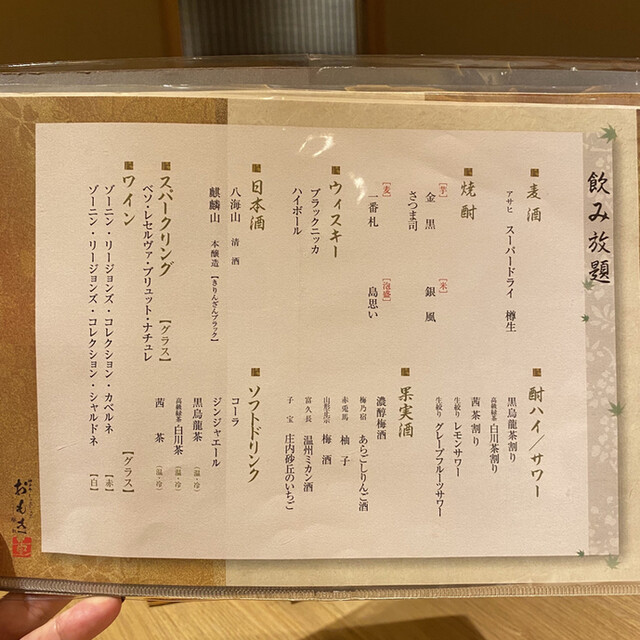 飲み放題
麦酒
アサヒ スーパードライ 樽生
焼酎
【芋】
金黒
さつま司
【米】
銀風
【麦】
一番札
【泡盛】
島思い
ウィスキー
ブラックニッカ
ハイボール
日本酒
八海山 清酒
麒麟山 本醸造 【きりんざんブラック】
スパークリング 【グラス】
ベソ・レセルヴァ・ブリュット・ナチュレ
ワイン 【グラス】
ゾーニン・リージョンズ・コレクション・カベルネ 【赤】
ゾーニン・リージョンズ・コレクション・シャルドネ 【白】
酎ハイ/サワー
黒烏龍茶割り
高級緑茶 白川茶割り
茜茶割り
生絞り レモンサワー
生絞り グレープフルーツサワー
果実酒
濃醇梅酒
梅乃宿 あらごしりんご酒
赤兎馬 柚子
山形正宗 梅酒
富久長 温州ミカン酒
子宝 庄内砂丘のいちご
ソフトドリンク
コーラ
ジンジャエール
黒烏龍茶 (温・冷)
高級緑茶 白川茶 (温・冷)
茜茶 (温・冷)
おもき